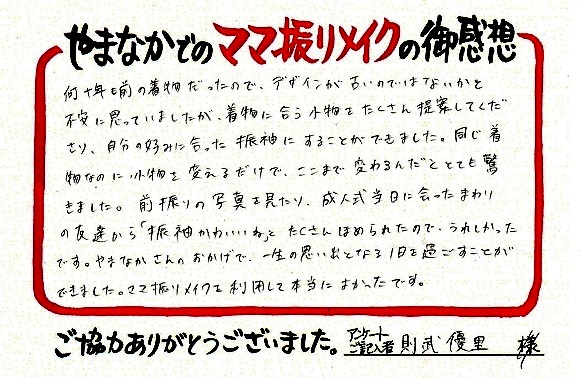 やまなかでのママ振リメイクの御感想
何十年も前の着物だったので、デザインが古いのではないかと
不安に思っていましたが、着物に合う小物をたくさん提案してくだ
さり、自分の好みに合った振袖にすることができました。同じ着
物なのに小物を変えるだけで、ここまで変わるんだととても驚
きました。前撮りの写真を見たり、成人式当日に会ったまわり
の友達から「振袖かわいいね」とたくさんほめられたので、うれしかった
です。やまなかさんのおかげで、一生の思い出となる1日を過ごすことが
できました。ママ振リメイクを利用して本当によかったです。
ご協力ありがとうございました。アンケートご記入者 則武 優里 様